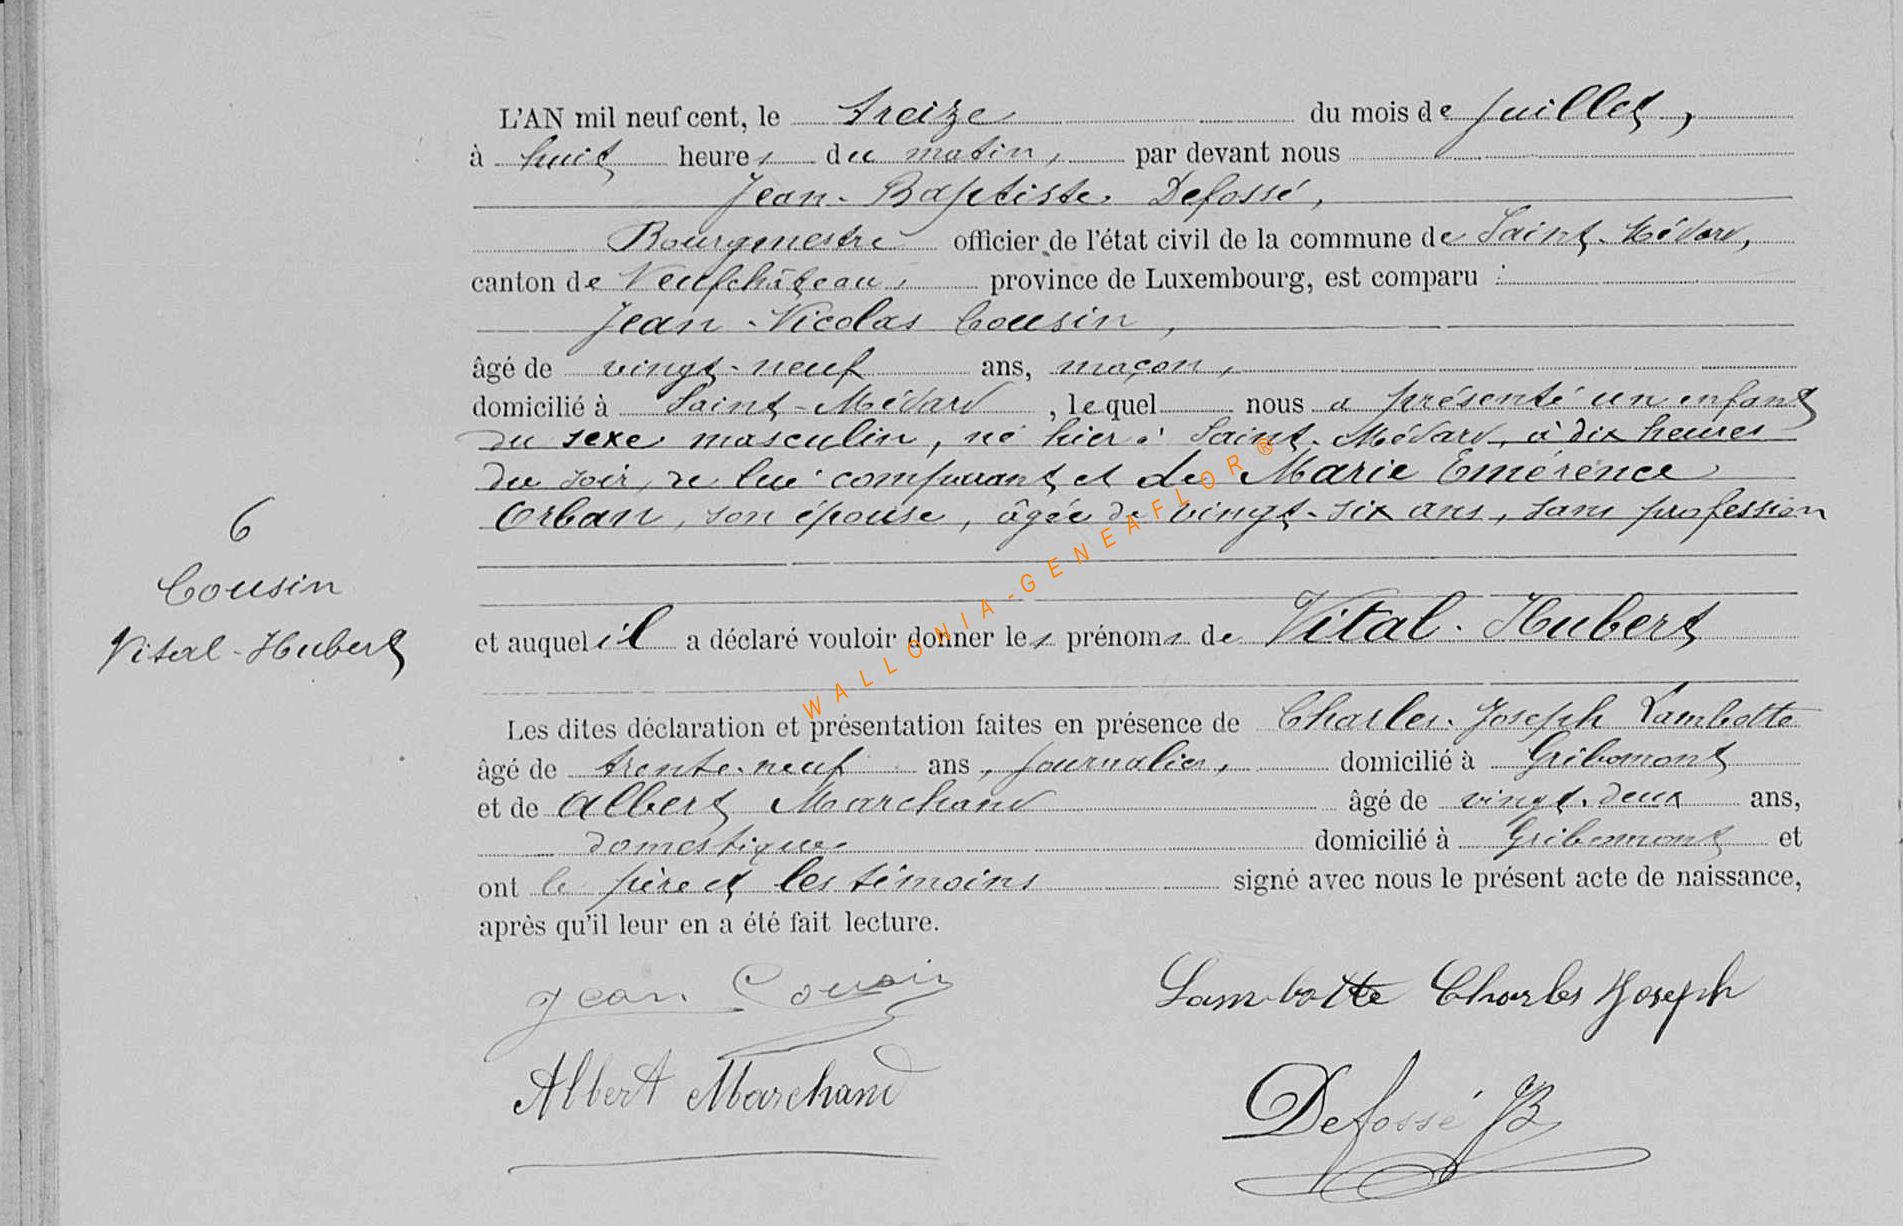 L'AN mil neuf cent, le treize du mois de juillet,
à huit heures du matin, par devant nous
Jean-Baptiste Defossé,
Bourgmestre officier de l'état civil de la commune de Saint-Médard,
canton de Neufchâteau, province de Luxembourg, est comparu :
Jean-Nicolas Cousin,
âgé de vingt-neuf ans, maçon,
domicilié à Saint-Médard, lequel nous a présenté un enfant
du sexe masculin, né hier à Saint-Médard, à dix heures
du soir, de lui comparant et de Marie Emérence
Orban, son épouse, âgée de vingt-six ans, sans profession
6
Cousin
Vital-Hubert
et auquel il a déclaré vouloir donner les prénoms de Vital-Hubert
Les dites déclaration et présentation faites en présence de Charles-Joseph Lambotte
âgé de trente-neuf ans, journalier, domicilié à Gribomont
et de Albert Marchand âgé de vingt-deux ans,
domestique domicilié à Gribomont et
ont le père et les témoins signé avec nous le présent acte de naissance,
après qu'il leur en a été fait lecture.
Jean Cousin
Lambotte Charles Joseph
Albert Marchand
Defossé JB
WALLONIA-GENEAFLOR ®